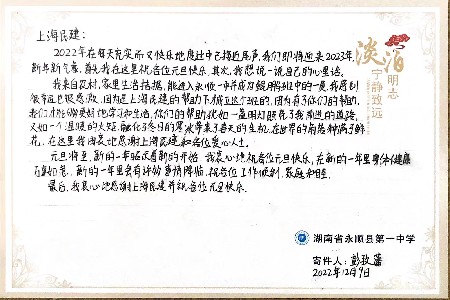 上海民建:
2022年在每天充实而又快乐地度过中已接近尾声,我们即将迎来2023年,
新年新气象,首先我在这里祝各位元旦快乐,其次,我想说一说自己的心里话。
我来自农村,家里生活拮据,能进入永顺一中并成为
很幸运也很感激,因为是上海民建的帮助下成立这个班的,因为有了你们的帮助,
我们才能够更好地学习和生活,你们的帮助犹如一盏明灯照亮了我前进的道路,
又如一个温暖的火炬,融化了冬日的寒冰带来了春天的生机,在世界的角落种满了鲜
花,在这里我由衷地感谢上海民建和各位爱心人士。
元旦将至,新的一年临近着新的开始,我衷心地祝各位元旦快乐,在新的一年里身体健康
万事如意,新的一年里会有好的事情降临,祝各位工作顺利,家庭和睦。
最后,我衷心地感谢上海民建并祝各位元旦快乐。
淡泊明志
宁静致远
湖南省永顺县第一中学
寄件人:彭玟
2022年12月9日